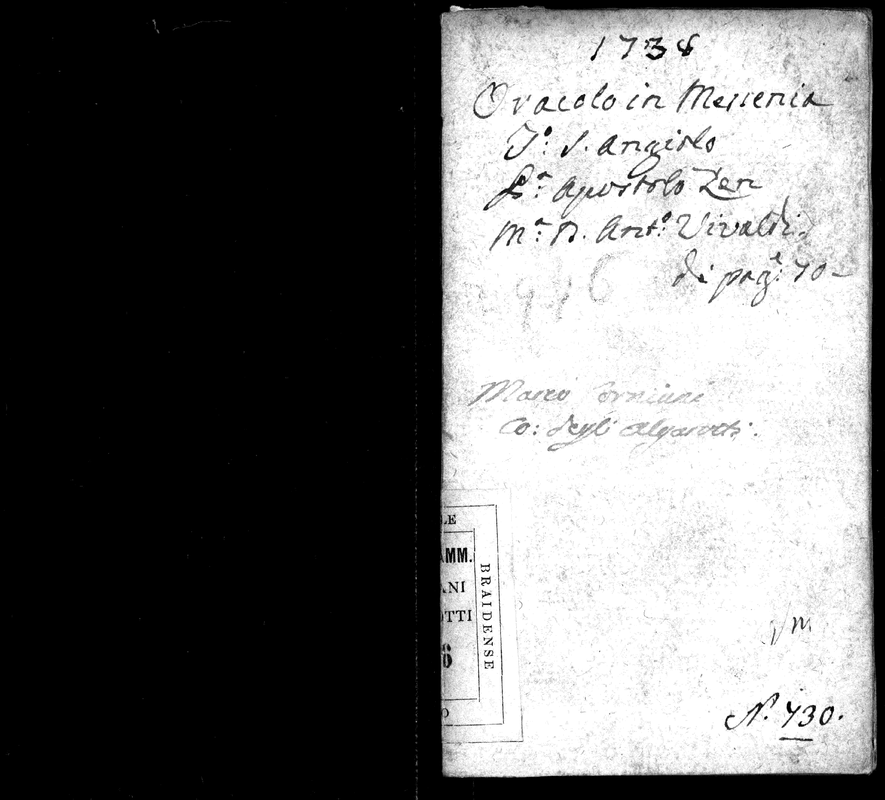 1738
Oracolo in Messenia
T.o: S. Angiolo
P.a: Apostolo Zen
M.a: D. Ant.o: Vivaldi.
di pag.e: 70
Marco Corniani
Co: degli Algarotti.
LE
AMM.
ANI
OTTI
6
O
BRAIDENSE
N. 730.